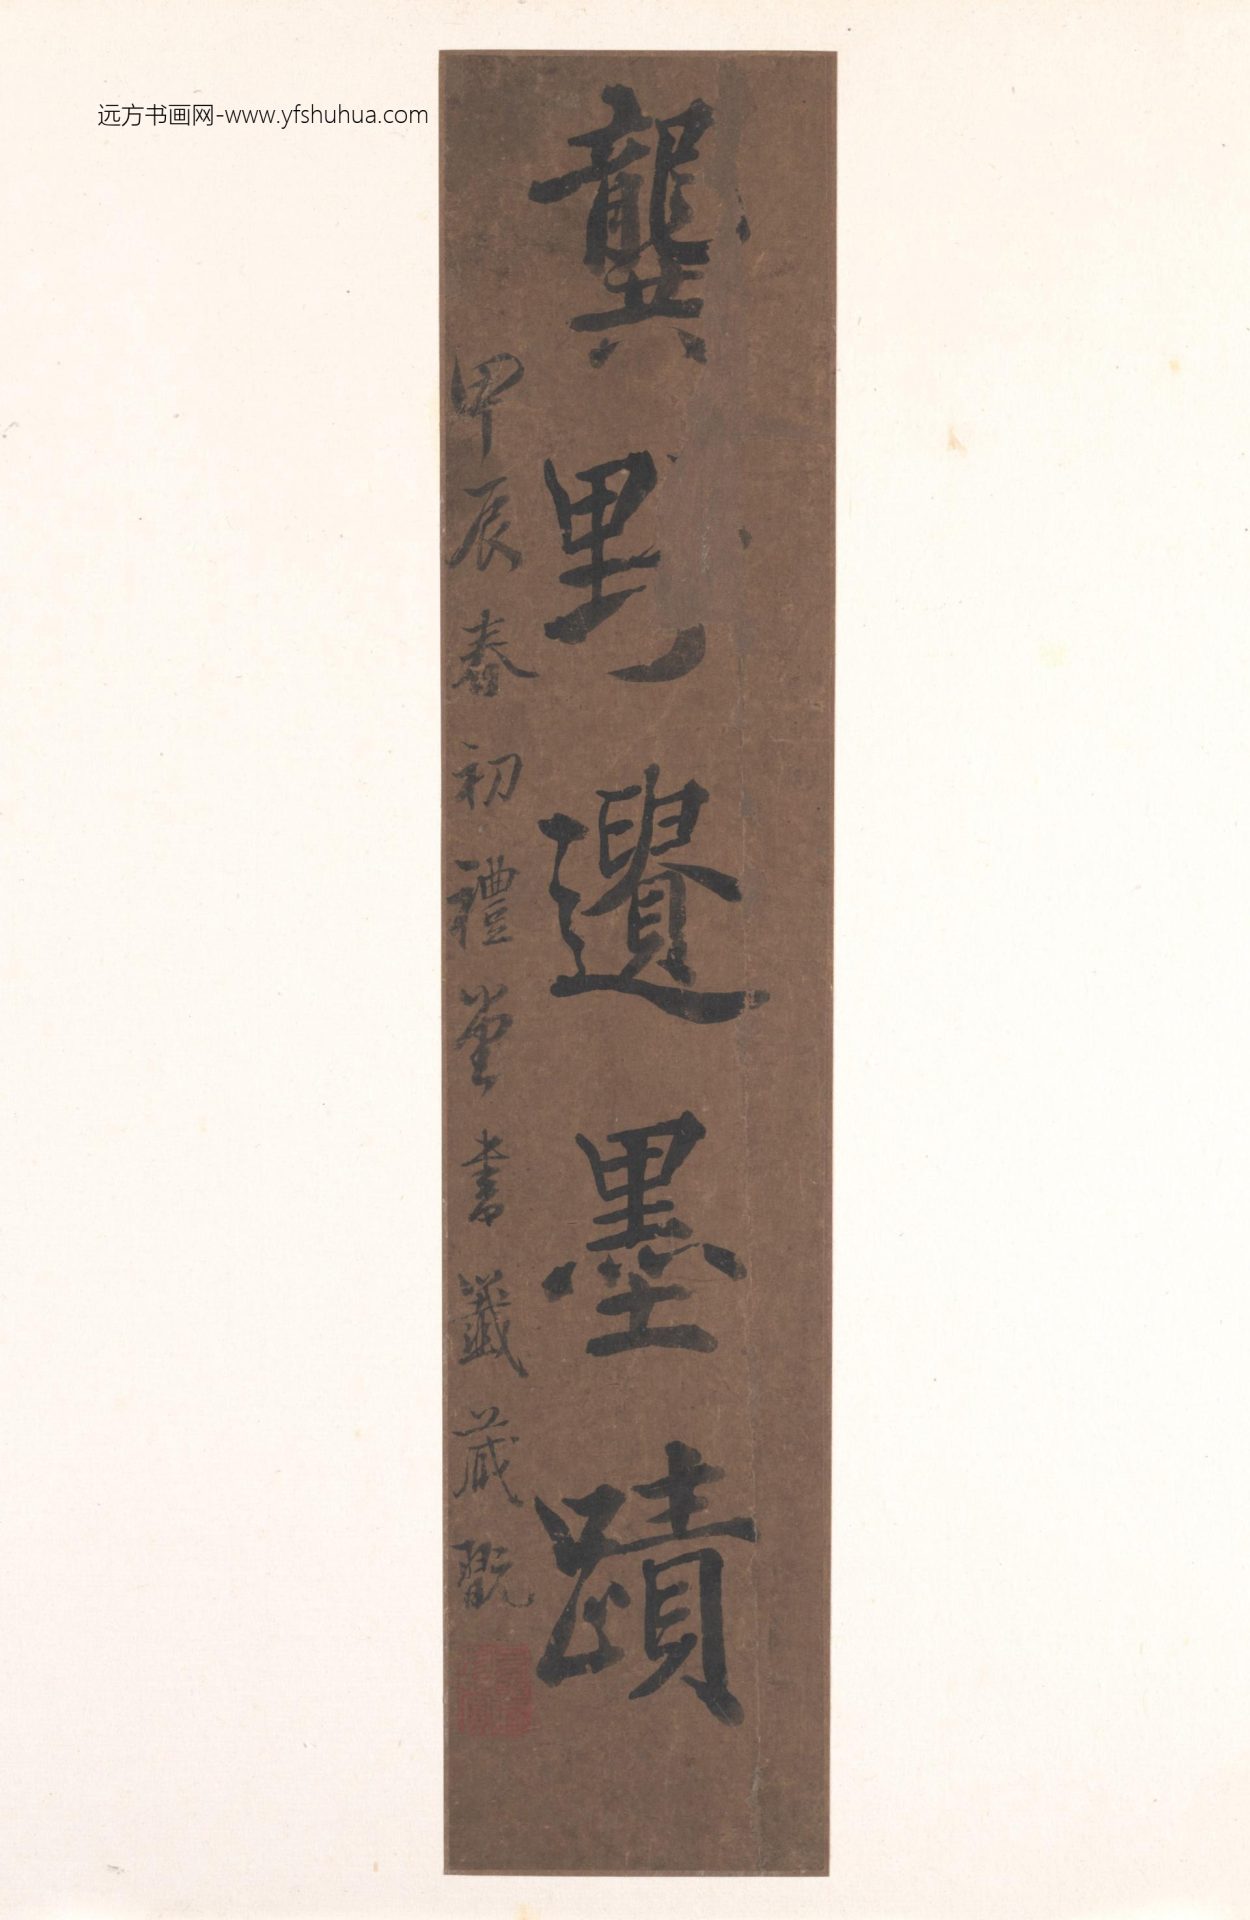 远方书画网-www.yfshuhua.com
龔野遺墨蹟
甲辰春初禮堂書籤藏翫